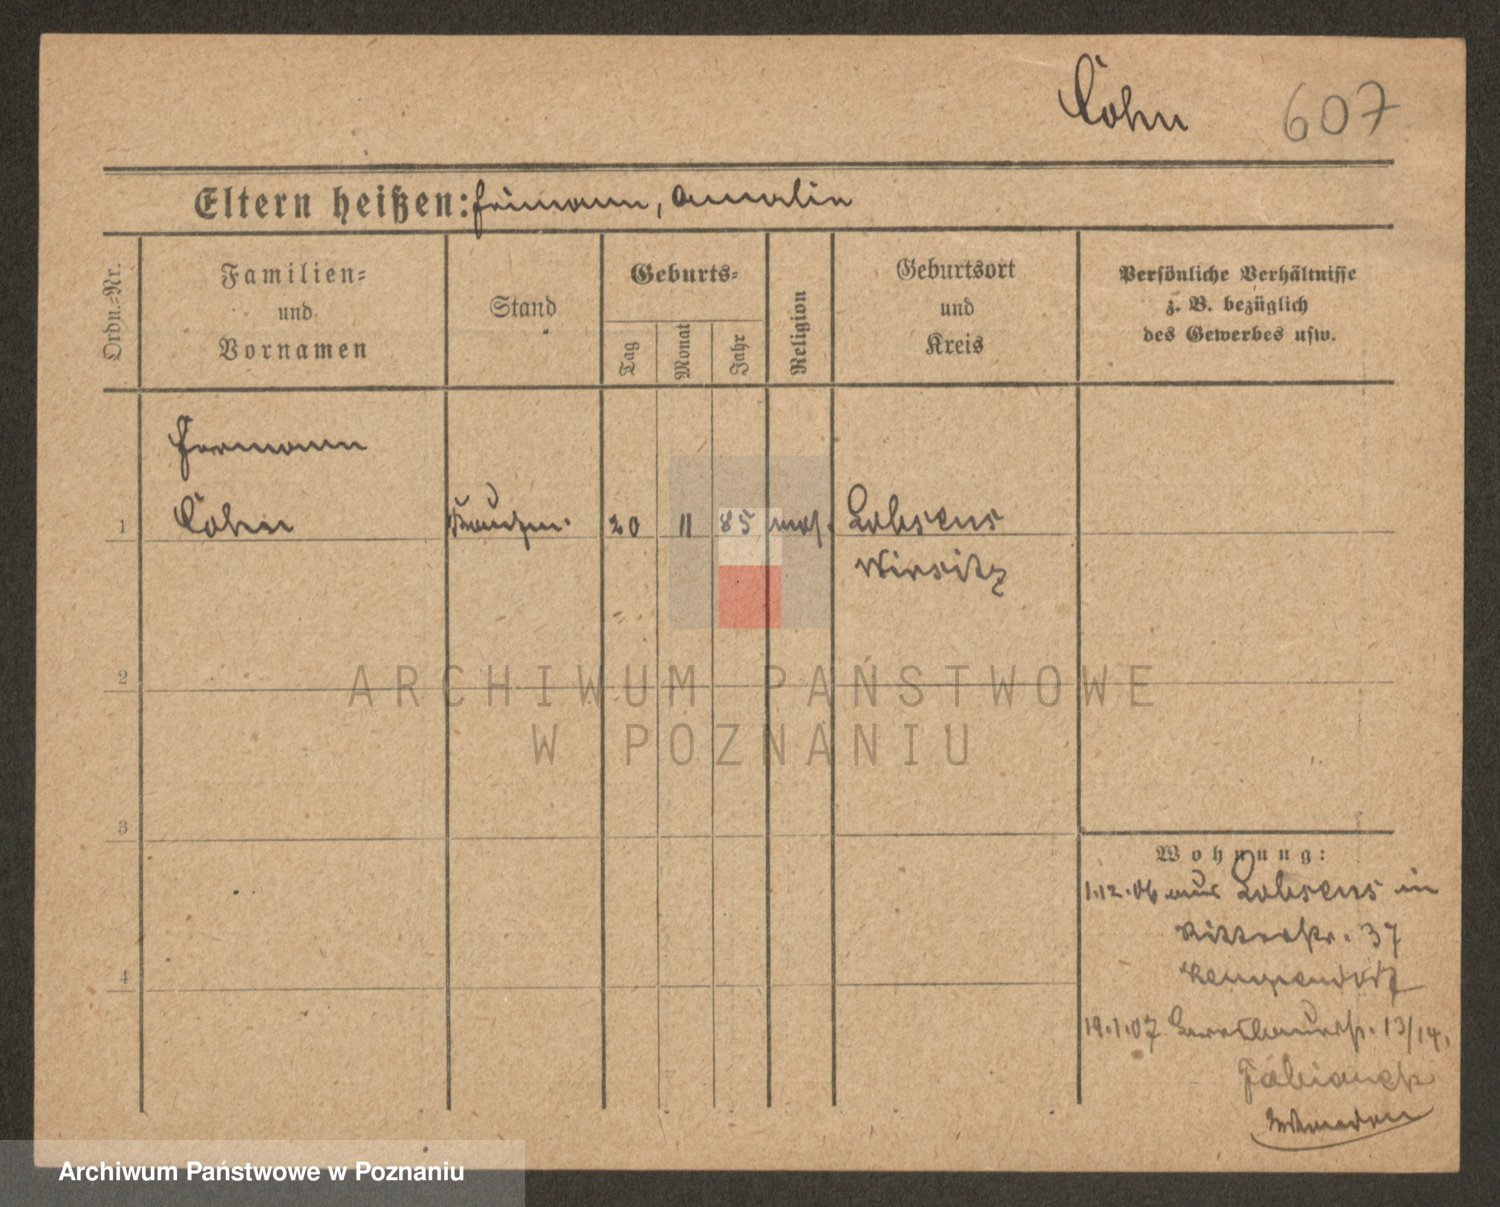 Cohn 607
Eltern heißen: Heimann, Amalie
Ordn.=Nr.
Familien=
und
Vornamen
Stand
Geburts=
Tag
Monat
Jahr
Religion
Geburtsort
und
Kreis
Persönliche Verhältnisse
z. B. bezüglich
des Gewerbes usw.
Hermann
1 Cohn 20 11 85 mos. Lobsens
Wirsitz
2
ARCHIWUM PAŃSTWOWE
W POZNANIU
3
Wohnung:
1.12.06 aus Lobsens in
Ritterstr. 37
4
19.1.07 13/14,
Archiwum Państwowe w Poznaniu